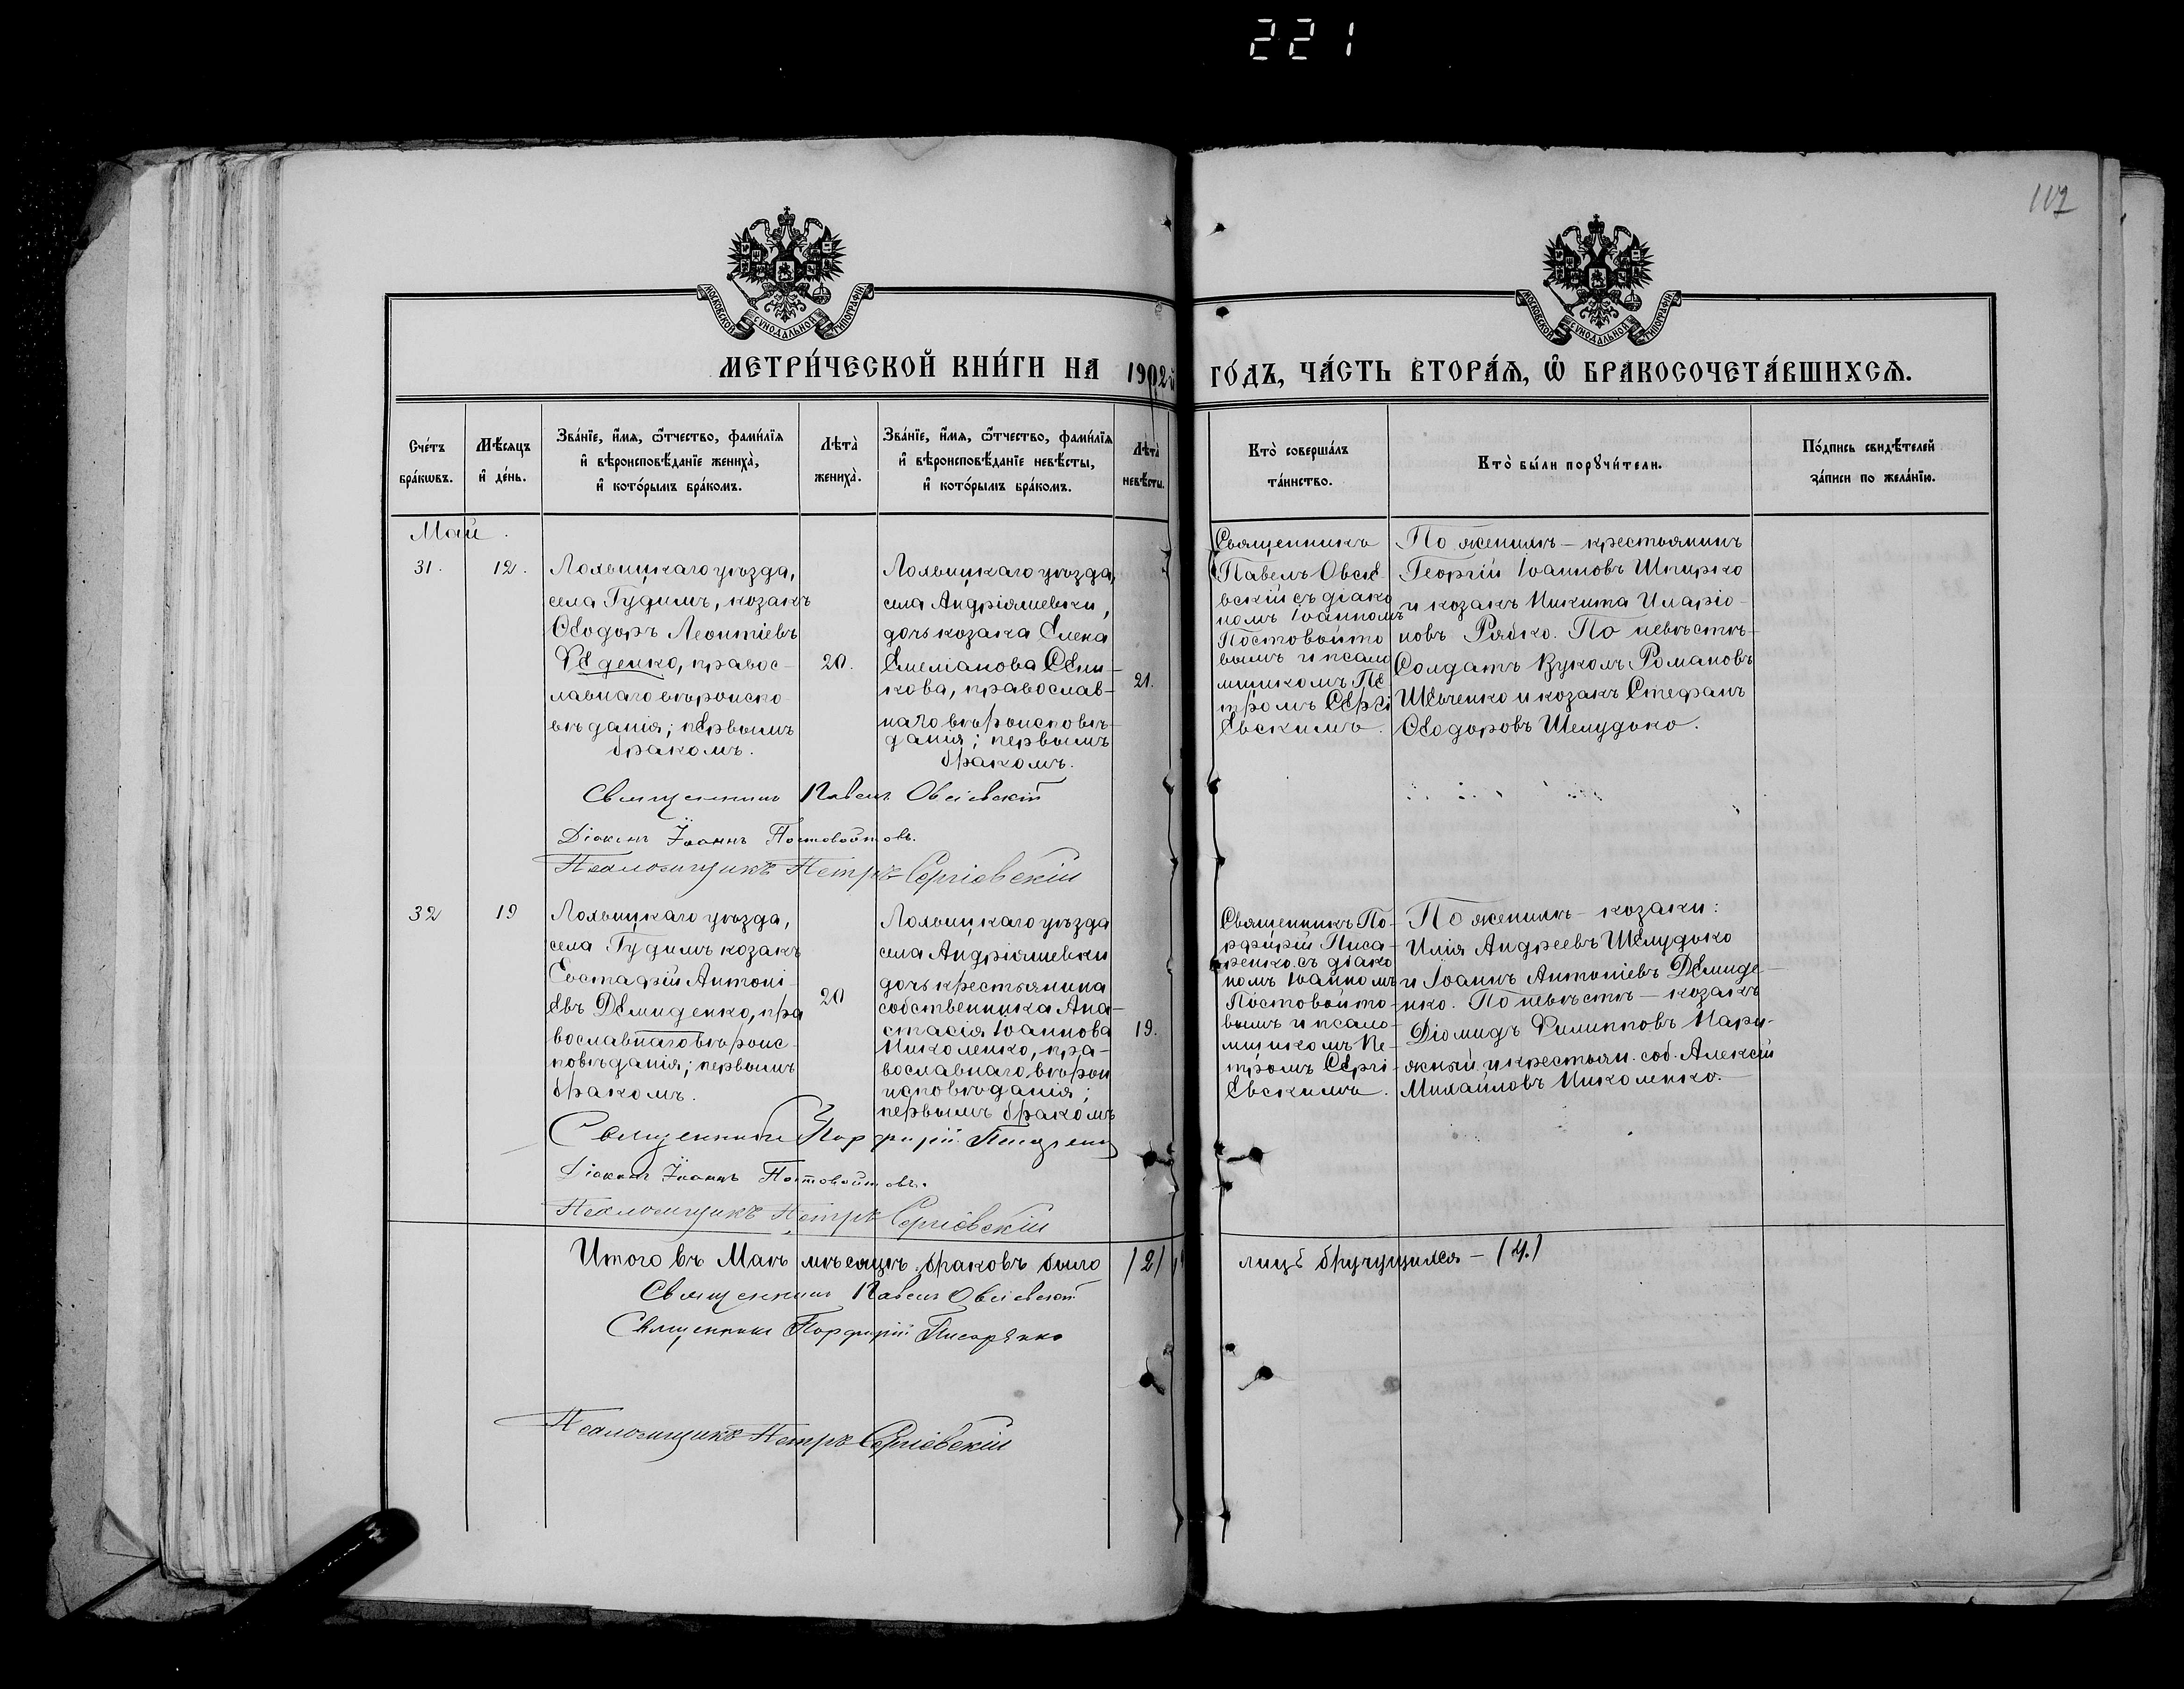 221
117
МОСКОВСКОЙ СѴНОДАЛЬНОЙ ТИПОГРАФІИ
МОСКОВСКОЙ СѴНОДАЛЬНОЙ ТИПОГРАФІИ
МЕТРИ́ЧЕСКОЙ КНИ́ГИ НА 1902й ГО́ДЪ, ЧА́СТЬ ВТОРА́Я, Ѡ҆ БРАКОСОЧЕТА́ВШИХСѦ.
Сче́тъ
бра́кѡвъ.
Мѣ́сяцъ
и҆ де́нь.
Зва́нїе, и҆́мя, ѻ҆́тчество, фами́лїя
и҆ вѣроисповѣ́данїе жениха̀,
и҆ кото́рымъ бра́комъ.
Лѣта̀
жениха̀.
Зва́нїе, и҆́мя, ѻ҆́тчество, фами́лїя
и҆ вѣроисповѣ́данїе невѣ́сты,
и҆ кото́рымъ бра́комъ.
Лѣта̀
невѣ́сты.
Кто̀ соверша́лъ
та́инство.
Кто̀ бы́ли порꙋчи́тели.
По́дпись свидѣ́телей
за́писи по жела́нїю.
Май.
31.
12.
Лохвицкаго уѣзда,
села Гудимъ, козакъ
Ѳеодоръ Леонтіевъ
Феденко, правос-
лавнаго вѣроиспо-
вѣданія; первымъ
бракомъ.
20.
Лохвицкаго уѣзда,
села Андріяшевки,
дочь козака Елена
Емеліанова
кова, православ-
наго вѣроисповѣ-
данія; первымъ
бракомъ.
21.
Священникъ
Павелъ Овсіе-
вскій съ діако
номъ Іоанномъ
Постовойто
вымъ и псало
мщикомъ Пе
тромъ Сергі
евскимъ.
По женихѣ – крестьянинъ
Георгій Іоанновъ Шпирко
и козакъ Никита Иларіо-
новъ Рябко. По невѣстѣ-
Солдатъ Вуколъ Романовъ
Шевченко и козакъ Стефанъ
Ѳеодоровъ Шелудько.
Священникъ Павелъ Овсіевскій
Діаконъ Іоаннъ Постовойтовъ.
Псаломщикъ Петръ Сергіевскій
32
19
Лохвицкаго уѣзда,
села Гудимъ козакъ
Евстафій Антоні-
евъ Демиденко, пра
вославнаго вѣроис-
повѣданія; первымъ
бракомъ.
20
Лохвицкаго уѣзда
села Андріяшевки
дочь крестьянина
собственника Ана-
стасія Іоаннова
Николенко, пра-
вославнаго вѣрои
исповѣданія;
первымъ бракомъ
19.
Священникъ По-
рфирій Писа-
ренко съ діако
номъ Іоанномъ
Постовойто-
вымъ и псало-
мщикомъ Пе-
тромъ Сергі-
евскимъ.
По женихѣ – козаки:
Илія Андреевъ Шелудько
и Іоаннъ Антоніевъ Демиде-
нко. По невѣстѣ – козакъ
Діомидъ Филипповъ Нари-
жный и крестьян. соб. Алексій
Михайловъ Николенко.
Священникъ Порфирій Писаренко
Діаконъ Іоаннъ Постовойтовъ.
Псаломщикъ Петръ Сергіевскій
Итого въ Маѣ мѣсяцѣ браковъ было /2/ лицъ – (4.)
Священникъ Павелъ Овсіевскій
Священникъ Порфирій Писаренко
Псаломщикъ Петръ Сергіевскій